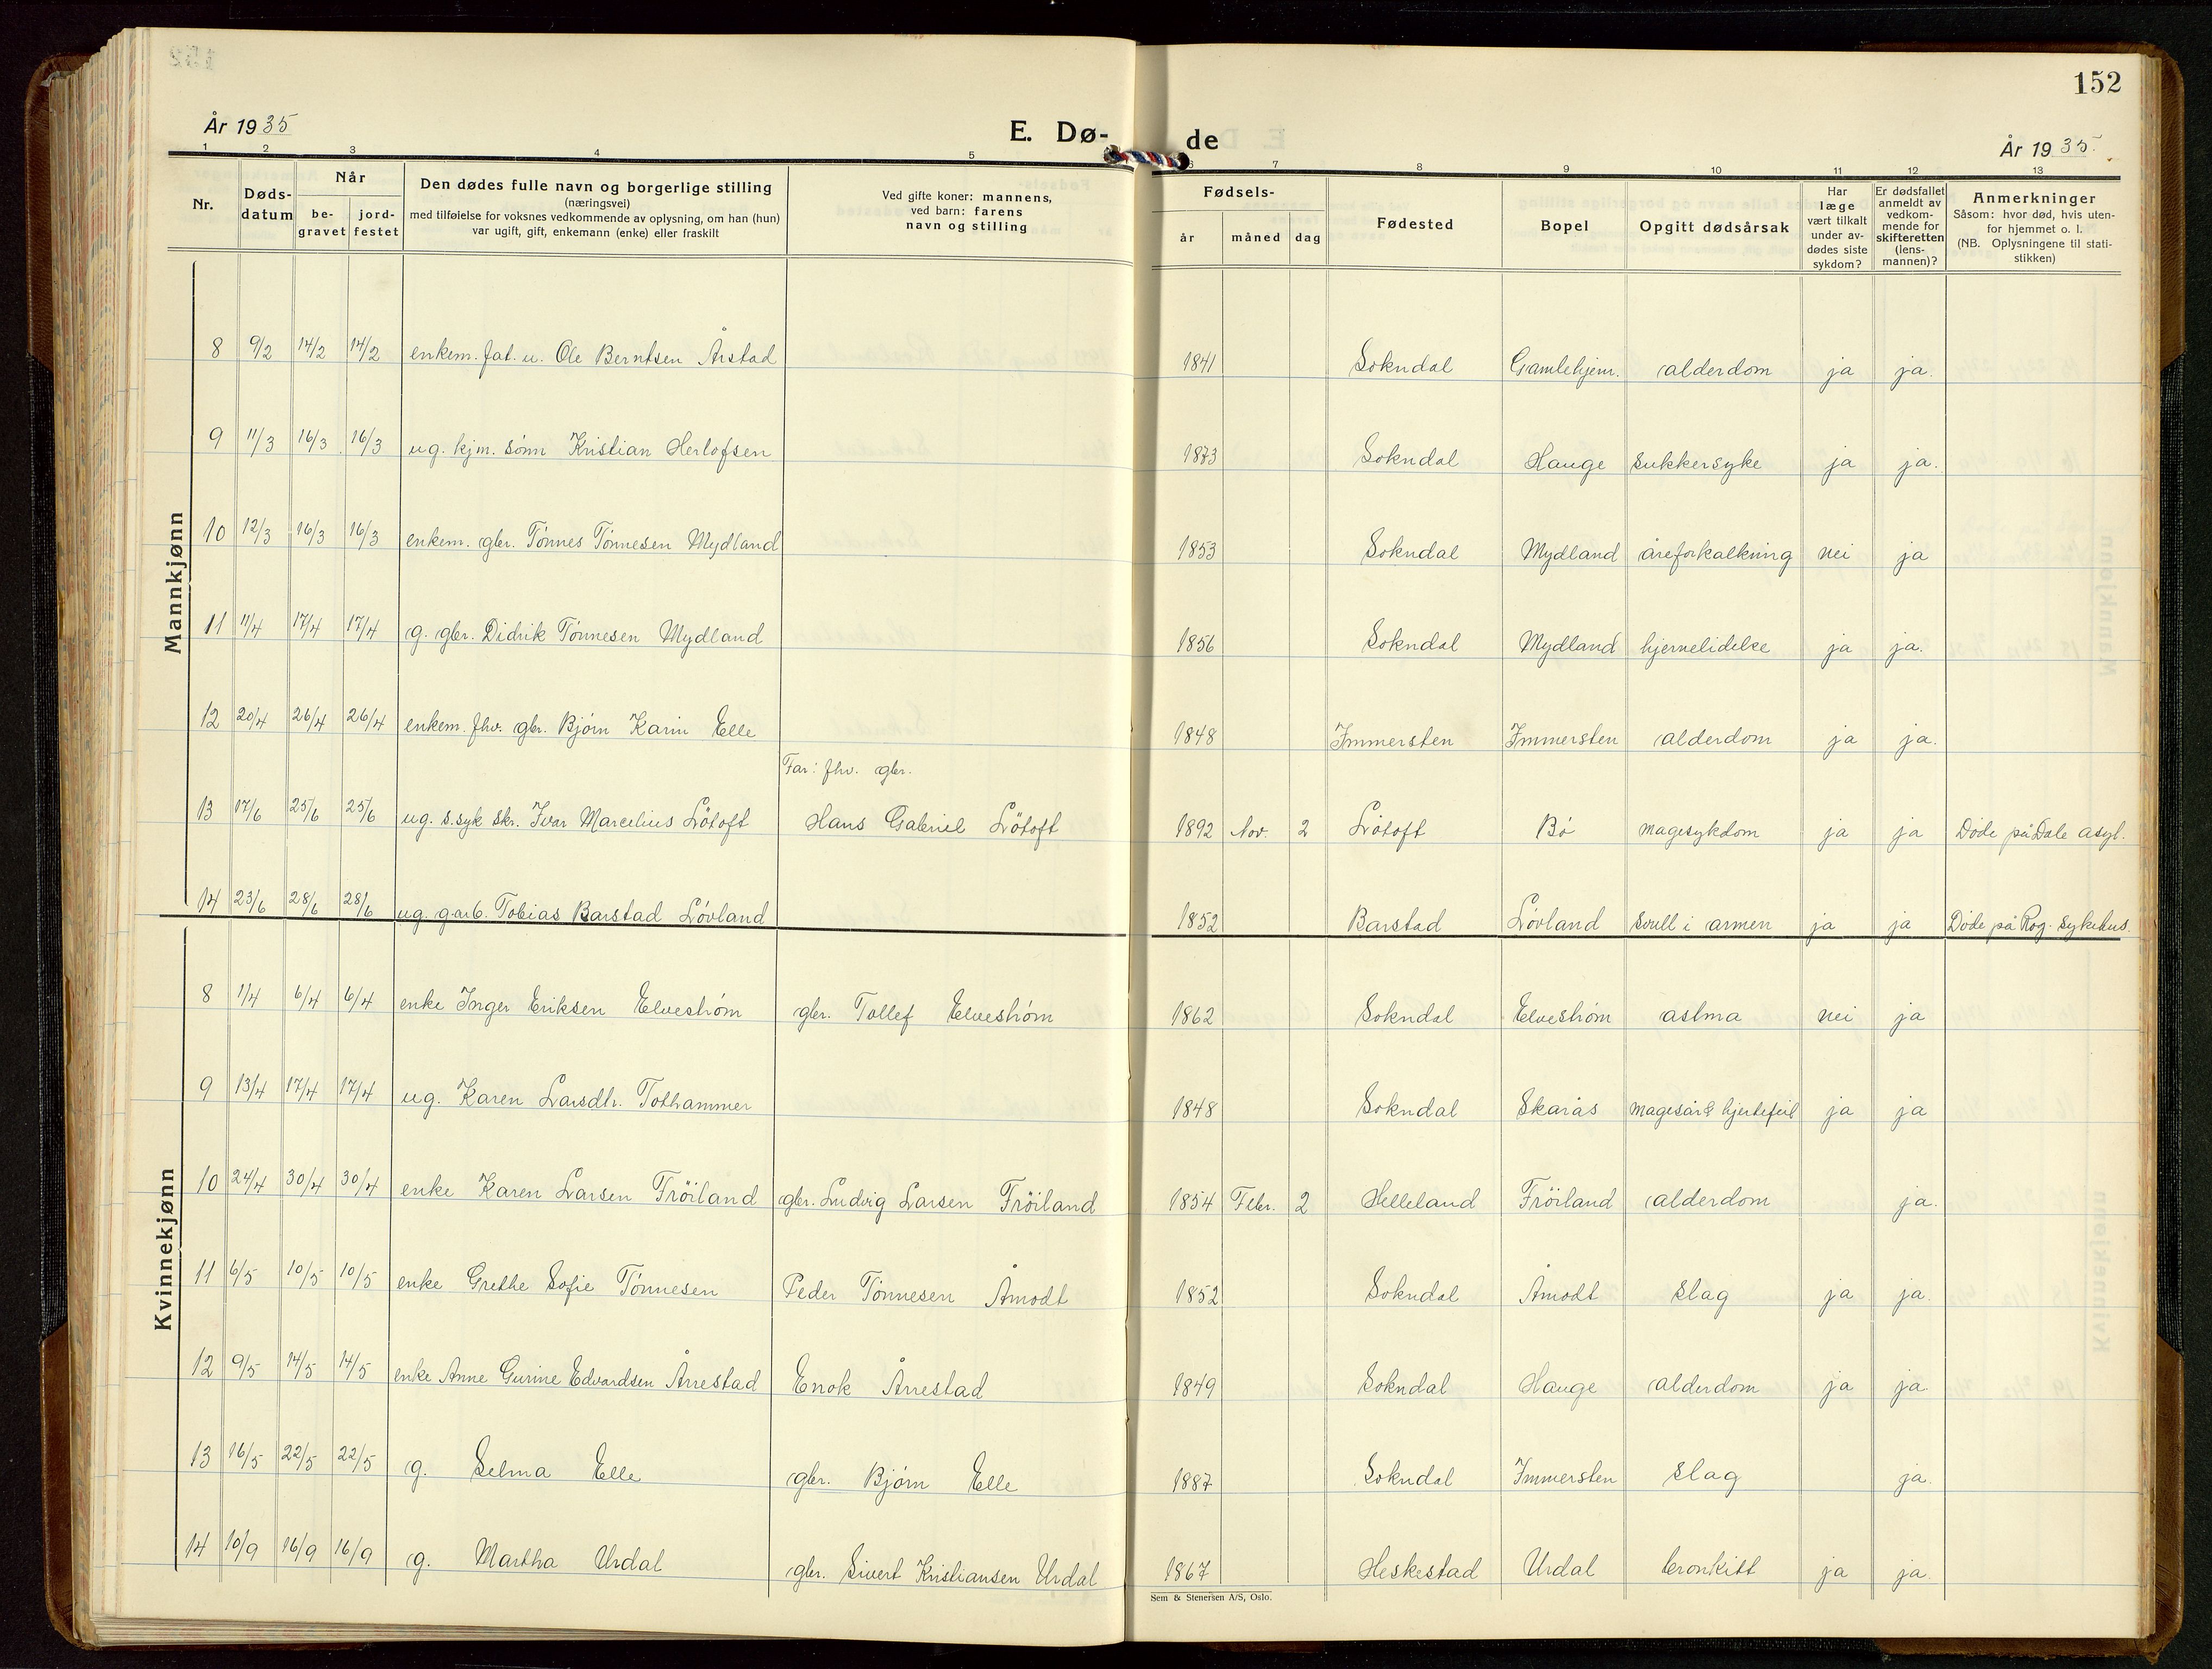 152
År 1935
E. Dø-
de
År 1935
1 2 3 4 5 6 7 8 9 10 11 12 13
Nr.
Døds-
datum
Når
be-
gravet
jord-
festet
Den dødes fulle navn og borgerlige stilling
(næringsvei)
med tilføielse for voksnes vedkommende av oplysning, om han (hun)
var ugift, gift, enkemann (enke) eller fraskilt
Ved gifte koner: mannens,
ved barn: farens
navn og stilling
Fødsels-
år måned dag
Fødested
Bopel
Opgitt dødsårsak
Har
læge
vært tilkalt
under av-
dødes siste
sykdom?
Er dødsfallet
anmeldt av
vedkom-
mende for
skifteretten
(lens-
mannen)?
Anmerkninger
Såsom: hvor død, hvis uten-
for hjemmet o. l.
(NB. Oplysningene til stati-
stikken)
Mannkjønn
8 9/2 14/2 14/2 enkem. fat. u. Ole Berntsen Årstad 1841 Sokndal Gamlehjem. alderdom ja ja.
9 11/3 16/3 16/3 ug. kjm. sønn Kristian Herlofsen 1873 Sokndal Hauge sukkersyke ja ja.
10 12/3 16/3 16/3 enkem. gbr. Tønnes Tønnesen Mydland 1853 Sokndal Mydland åreforkalkning nei ja
11 11/4 17/4 17/4 g. gbr. Didrik Tønnesen Mydland 1856 Sokndal Mydland hjernelidelse ja ja.
12 20/4 26/4 26/4 enkem. fhv. gbr. Bjørn Karin Elle 1848 Immersten Immersten alderdom ja ja.
Far: fhv. gbr.
13 17/6 25/6 25/6 ug. s.syk skr. Ivar Marcelius Lötoft Hans Gabriel Lötoft 1892 Nov. 2 Lötoft Bø magesykdom ja ja Døde på Dale asyl.
14 23/6 28/6 28/6 ug. g.arb. Tobias Barstad Løvland 1852 Barstad Løvland svull i armen ja ja Døde på Rog. sykehus.
Kvinnekjønn
8 1/4 6/4 6/4 enke Inger Eriksen Elvestrøm gbr. Tollef Elvestrøm 1862 Sokndal Elvestrøm astma nei ja
9 13/4 17/4 17/4 ug. Karen Larsdtr. Tothammer 1848 Sokndal Skarås magesår & hjertefeil ja ja
10 24/4 30/4 30/4 enke Karen Larsen Fröiland gbr. Ludvig Larsen Fröiland 1854 Febr. 2 Helleland Fröiland alderdom ja.
11 6/5 10/5 10/5 enke Grethe Sofie Tønnesen Peder Tønnesen Åmodt 1852 Sokndal Åmodt slag ja ja.
12 9/5 14/5 14/5 enke Anne Gurine Edvardsen Årrestad Enok Årrestad 1849 Sokndal Hauge alderdom ja ja.
13 16/5 22/5 22/5 g. Selma Elle gbr. Bjørn Elle 1887 Sokndal Immersten slag ja.
14 10/9 16/9 16/9 g. Martha Urdal gbr. Sivert Kristiansen Urdal 1867 Heskestad Urdal bronkitt ja ja.
Sem & Stenersen A/S, Oslo.